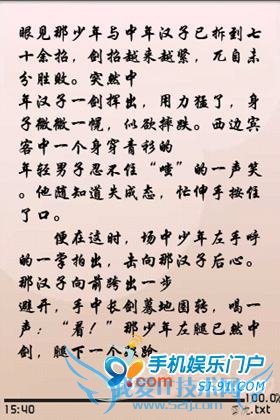 眼见那少年与中年汉子已拆到七
十余招，剑招越来越紧，兀自未
分胜败。突然中
年汉子一剑挥出，用力猛了，身
子微微一幌，似欲摔跌。西边宾
客中一个身穿青衫的
年轻男子忍不住“嗤”的一声笑
。他随知道失成态，忙伸手按住
了口。
便在这时，场中少年左手呼
的一掌拍出，击向那汉子后心。
那汉子向前跨出一步
避开，手中长剑蓦地圈转，喝一
声：“着！”那少年左腿已然中
剑，腿下一个
手机娱乐门户
.com
SJ.91.COM
我爱IT技术网
15:40
100.0
.txt